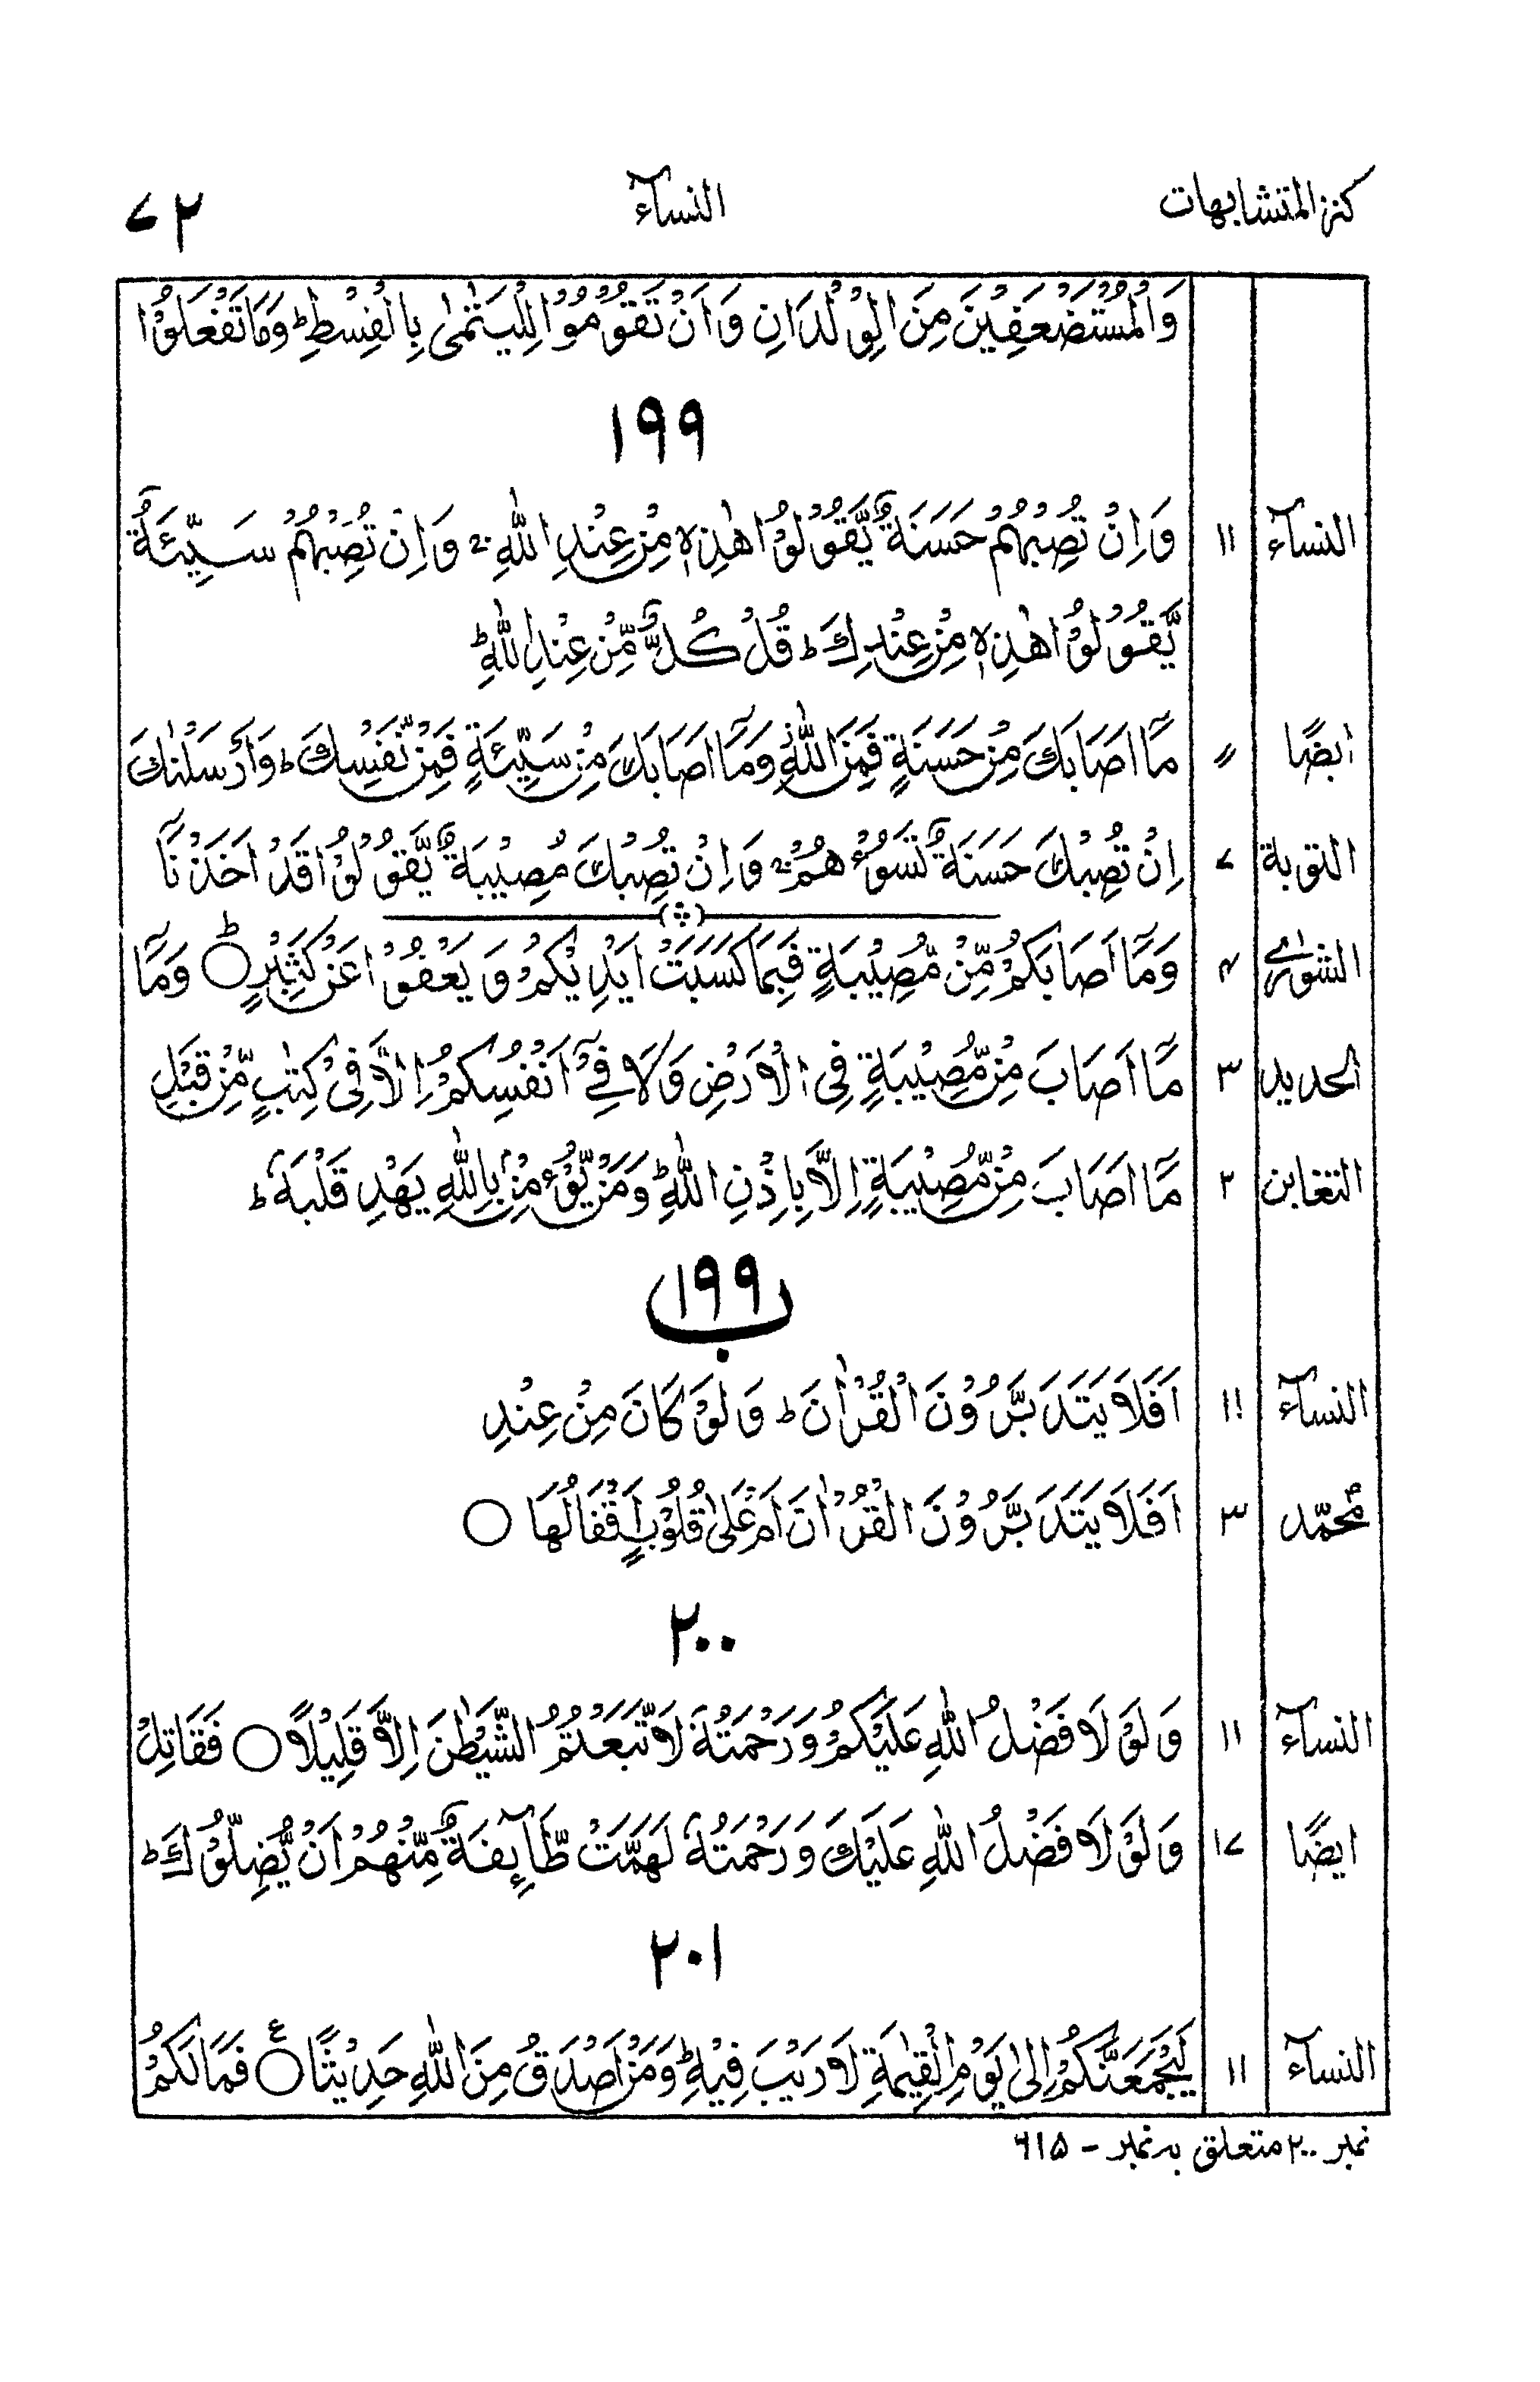 كنز المتشابهات النسآء ۷۲
وَالْمُسْتَضْعَفِيْنَ مِنَ الْوِلْدَانِ وَاَنْ تَقُوْمُوْا لِلْيَتٰمٰى بِالْقِسْطِ ؕ وَمَا تَفْعَلُوْا
۱۹۹
النسآء ۱۱ وَاِنْ تُصِبْهُمْ حَسَنَةٌ يَّقُوْلُوْا هٰذِهٖ مِنْ عِنْدِ اللّٰهِ ۚ وَاِنْ تُصِبْهُمْ سَيِّئَةٌ
يَّقُوْلُوْا هٰذِهٖ مِنْ عِنْدِكَ ؕ قُلْ كُلٌّ مِّنْ عِنْدِ اللّٰهِ ؕ
ايضًا 〃 مَآ اَصَابَكَ مِنْ حَسَنَةٍ فَمِنَ اللّٰهِ ۫ وَمَآ اَصَابَكَ مِنْ سَيِّئَةٍ فَمِنْ نَّفْسِكَ ؕ وَاَرْسَلْنٰكَ
التوبة ۷ اِنْ تُصِبْكَ حَسَنَةٌ تَسُؤْهُمْ ۚ وَاِنْ تُصِبْكَ مُصِيْبَةٌ يَّقُوْلُوْا قَدْ اَخَذْنَآ
الشورٰى ۴ وَمَآ اَصَابَكُمْ مِّنْ مُّصِيْبَةٍ فَبِمَا كَسَبَتْ اَيْدِيْكُمْ وَيَعْفُوْا عَنْ كَثِيْرٍ ○ؕ وَمَآ
الحديد ۳ مَآ اَصَابَ مِنْ مُّصِيْبَةٍ فِى الْاَرْضِ وَلَا فِىْٓ اَنْفُسِكُمْ اِلَّا فِىْ كِتٰبٍ مِّنْ قَبْلِ
التغابن ۲ مَآ اَصَابَ مِنْ مُّصِيْبَةٍ اِلَّا بِاِذْنِ اللّٰهِ ؕ وَمَنْ يُّؤْمِنْۢ بِاللّٰهِ يَهْدِ قَلْبَهٗ ؕ
۱۹۹ ب
النسآء ۱۱ اَفَلَا يَتَدَبَّرُوْنَ الْقُرْاٰنَ ؕ وَلَوْ كَانَ مِنْ عِنْدِ
محمّد ۳ اَفَلَا يَتَدَبَّرُوْنَ الْقُرْاٰنَ اَمْ عَلٰى قُلُوْبٍ اَقْفَالُهَا ○
۲۰۰
النسآء ۱۱ وَلَوْلَا فَضْلُ اللّٰهِ عَلَيْكُمْ وَرَحْمَتُهٗ لَاتَّبَعْتُمُ الشَّيْطٰنَ اِلَّا قَلِيْلًا ○ فَقَاتِلْ
ايضًا ۱۷ وَلَوْلَا فَضْلُ اللّٰهِ عَلَيْكَ وَرَحْمَتُهٗ لَهَمَّتْ طَّآئِفَةٌ مِّنْهُمْ اَنْ يُّضِلُّوْكَ ؕ
۲۰۱
النسآء ۱۱ لَيَجْمَعَنَّكُمْ اِلٰى يَوْمِ الْقِيٰمَةِ لَا رَيْبَ فِيْهِ ؕ وَمَنْ اَصْدَقُ مِنَ اللّٰهِ حَدِيْثًا ○ع فَمَا لَكُمْ
نمبر ۲۰۰ متعلق بہ نمبر - ۶۱۵